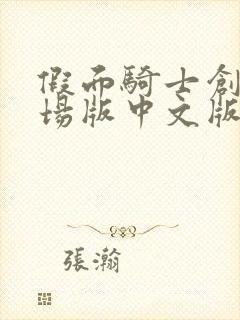 假面騎士創
場版中文版
張瀚